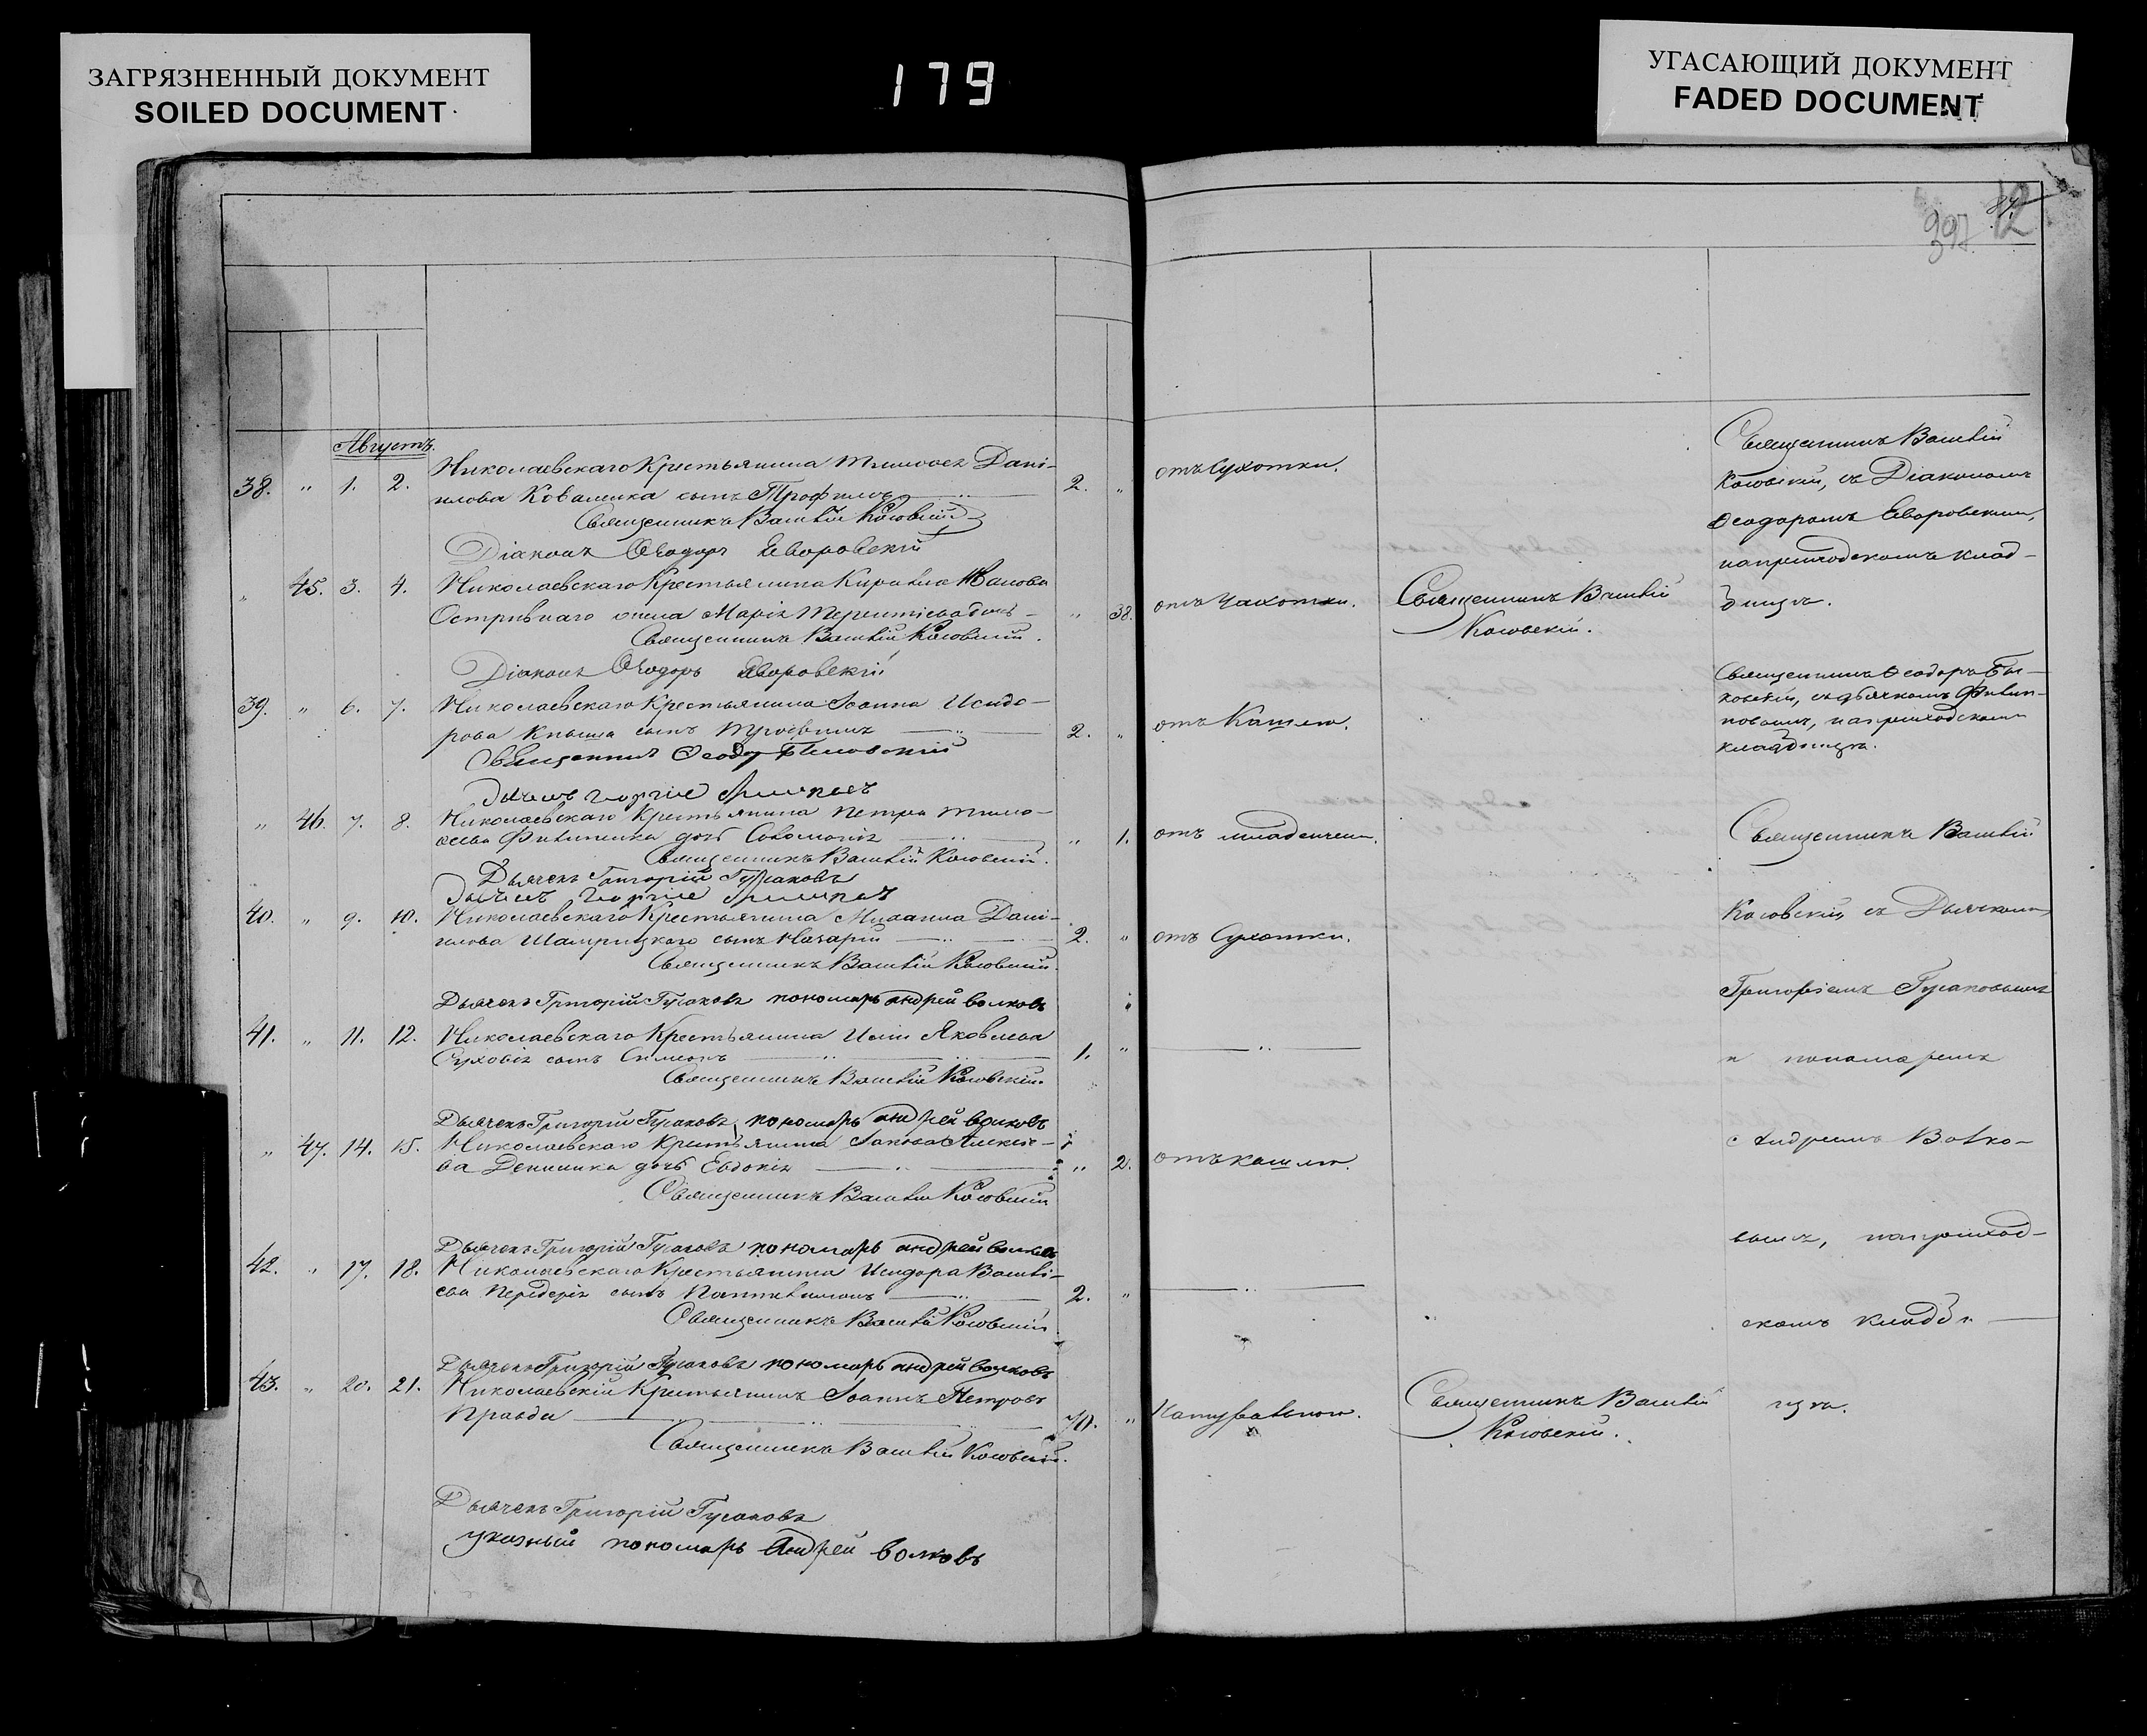 ЗАГРЯЗНЕННЫЙ ДОКУМЕНТ
SOILED DOCUMENT
179
УГАСАЮЩИЙ ДОКУМЕНТ
FADED DOCUMENT
397 12
Августъ.
38. " 1. 2. Николаевскаго Крестьянина Тимоѳея Дані-
илова Коваленка сынъ Трофимъ 2. " отъ Сухотки.
Священникъ Василій Косовскій
Діаконъ Ѳеодоръ Яворовскій
Священникъ Василій
Косовскій, съ Діакономъ
Ѳеодоромъ Яворовскимъ,
на приходскомъ клад-
бищѣ.
" 45. 3. 4. Николаевскаго Крестьянина Кирилла
Остривнаго жена Марія Терентіева " 38. отъ Чахотки. Священникъ Василій
Косовскій.
Священникъ Василій Косовскій.
Діаконъ Ѳеодоръ Яворовскій
39. " 6. 7. Николаевскаго Крестьянина Іоанна Исидо-
рова Кныша сынъ 2. " отъ Кашлю.
Священникъ Ѳеодоръ
Священникъ Ѳеодоръ
съ дьячкомъ
на приходскомъ
кладбищѣ.
Дьячекъ Георгій
" 46. 7. 8. Николаевскаго Крестьянина Петра Тимо-
ѳеева Филипенка дочь Соломонія " 1. отъ младенчем.
Священникъ Василій Косовскій.
Дьячекъ Григорій Гусаковъ
Дьячекъ Георгій
40. " 9. 10. Николаевскаго Крестьянина Михаила Дані-
илова Шамрицкаго сынъ Назарій 2. " отъ Сухотки.
Священникъ Василій Косовскій.
Дьячекъ Григорій Гусаковъ пономарь андрей волковъ
41. " 11. 12. Николаевскаго Крестьянина Иліи Яковлева
Суховія сынъ Симеонъ 1. "
Священникъ Василій Косовскій.
Дьячекъ Григорій Гусаковъ, пономарь андрей волковъ
" 47. 14. 15. Николаевскаго Крестьянина Іакова Алексѣе-
ва Денисенка дочь Евдокія " 2. отъ кашлю.
Священникъ Василій Косовскій
Дьячекъ Григорій Гусаковъ пономарь андрей волковъ
42. " 17. 18. Николаевскаго Крестьянина Исидора Василі-
ева Передерія сынъ Пантелимонъ 2. "
Священникъ Василій Косовскій
Дьячекъ Григорій Гусаковъ пономарь андрей волковъ
43. " 20. 21. Николаевскій Крестьянинъ Іоаннъ Петровъ
Правда 70. " Натурально. Священникъ Василій
Косовскій.
Священникъ Василій Косовскій.
Дьячекъ Григорій Гусаковъ
указный пономарь Андрей волковъ
Священникъ Василій
Косовскій, съ Дьячкомъ
Григоріемъ Гусаковымъ
и пономаремъ
Андреемъ Волко-
вымъ, на приход-
скомъ кладби-
щѣ.